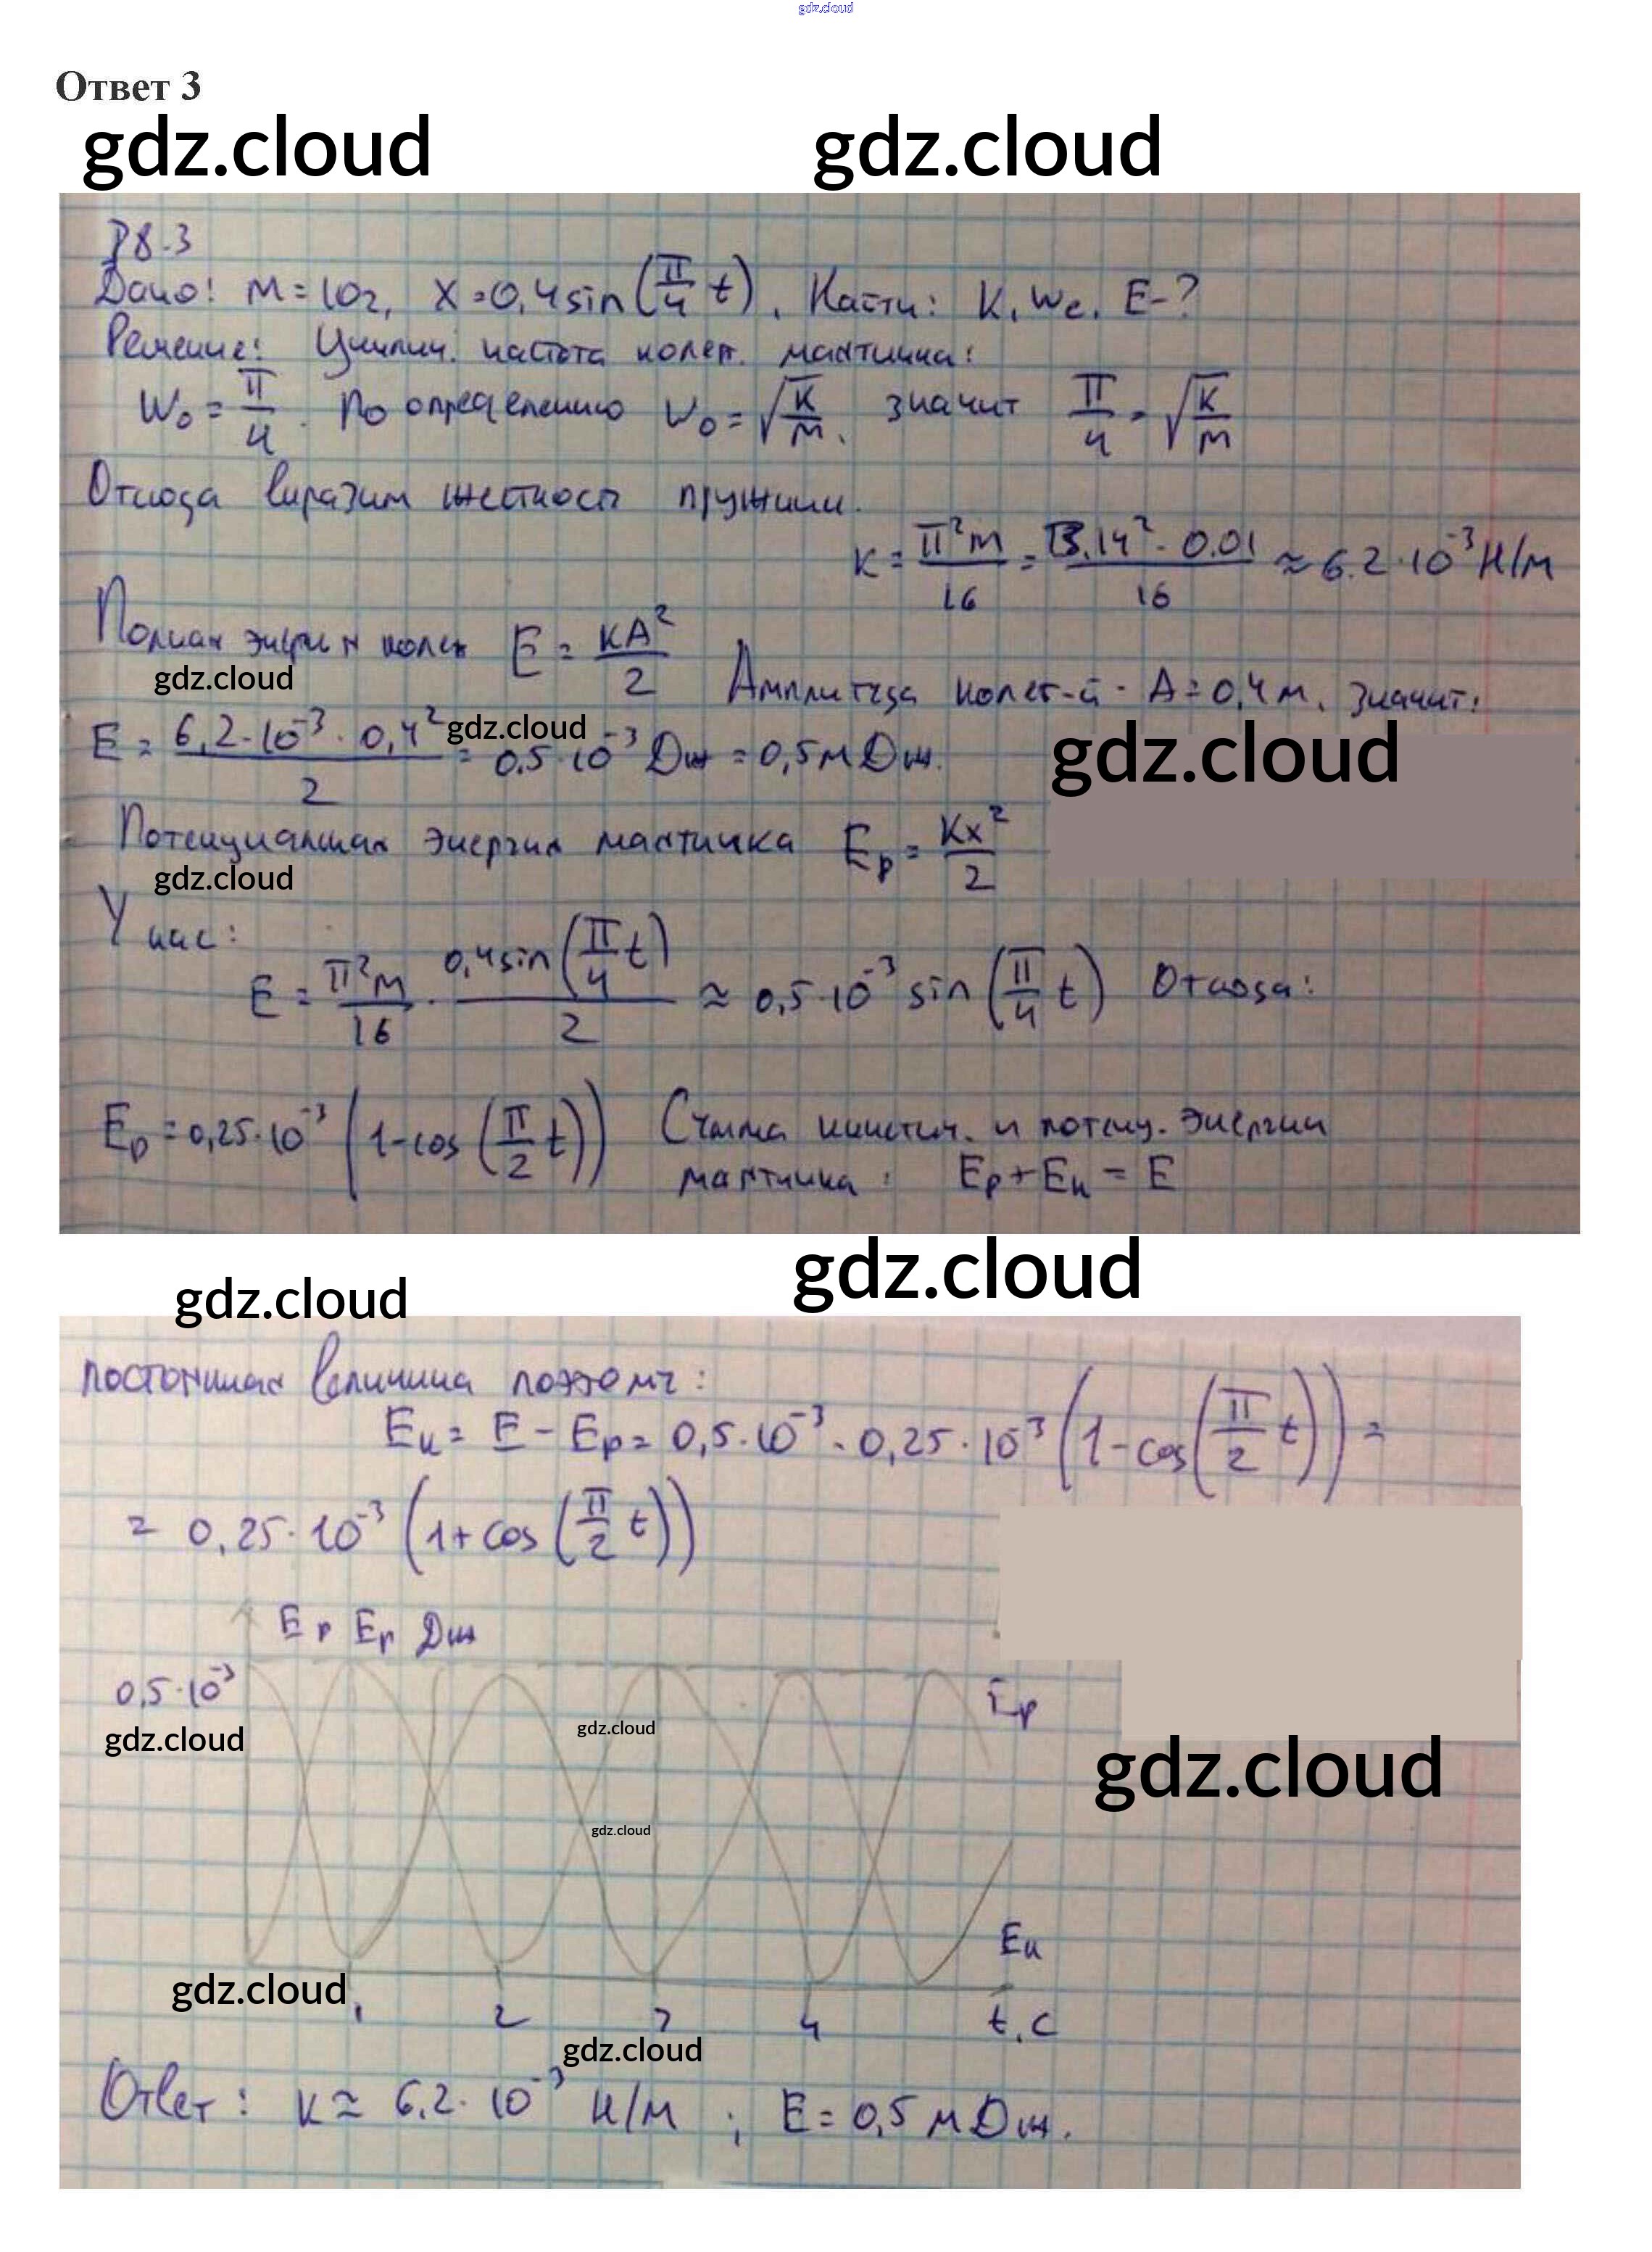 gdz.cloud
Ответ 3
gdz.cloud gdz.cloud
38.3
Дано: m=10г, x=0,4sin(π/4 t). Найти: k, ω₀, E-?
Решение: Циклич. частота колеб. маятника:
ω₀ = π/4. По определению ω₀ = √(k/m). значит π/4 = √(k/m)
Отсюда выразим жесткость пружины.
k = π²m/16 = 3.14² · 0.01/16 ≈ 6.2 · 10⁻³ Н/м
Полная энергия колеб E = kA²/2
gdz.cloud
Амплитуда колеб-й - A = 0,4 м. Значит:
E = 6,2·10⁻³ · 0,4²/2 = 0.5·10⁻³ Дж = 0,5 мДж.
gdz.cloud
gdz.cloud
Потенциальная энергия маятника Eр = kx²/2
gdz.cloud
У нас:
E = π²m/16 · 0,4sin(π/4 t)/2 ≈ 0,5·10⁻³ sin(π/4 t) Отсюда:
Eр = 0,25·10⁻³ (1-cos(π/2 t)) Сумма кинетич. и потенц. энергии
маятника: Eр + Eк = E
gdz.cloud
gdz.cloud
постоянная величина поэтому:
Eк = E - Eр = 0,5·10⁻³ - 0,25·10⁻³ (1-cos(π/2 t)) =
= 0,25·10⁻³ (1+cos(π/2 t))
Eр Eр Дж
0,5·10⁻³
Eр
gdz.cloud
gdz.cloud
gdz.cloud
gdz.cloud
Eк
gdz.cloud
1 2 3 4 t,c
gdz.cloud
Ответ: k ≈ 6,2·10⁻³ Н/м ; E = 0,5 мДж.